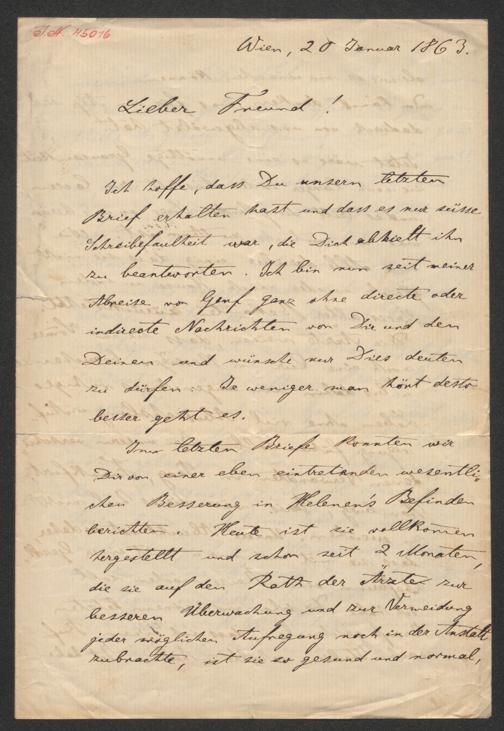 I.N. 45016
Wien, 20 Januar 1863.
Lieber Freund!
Ich hoffe, dass Du unsern letzten
Brief erhalten hast und dass es nur süsse
Schreibefaulheit war, die Dich abhielt ihn
zu beantworten. Ich bin nun seit meiner
Abreise von Genf ganz ohne directe oder
indirecte Nachrichten von Dir und den
Deinen und wünsche nur Dies deuten
zu dürfen: Je weniger man hört desto
besser geht es.
Im letzten Briefe konnten wir
Dir von einer eben eintretenden wesentli-
chen Besserung in Helenen's Befinden
berichten. Heute ist sie vollkommen
hergestellt und schon seit 2 Monaten,
die sie auf den Rath der Ärzte zur
besseren Überwachung und zur Vermeidung
jeder möglichen Aufregung noch in der Anstalt
zubrachte, ist sie so gesund und normal,